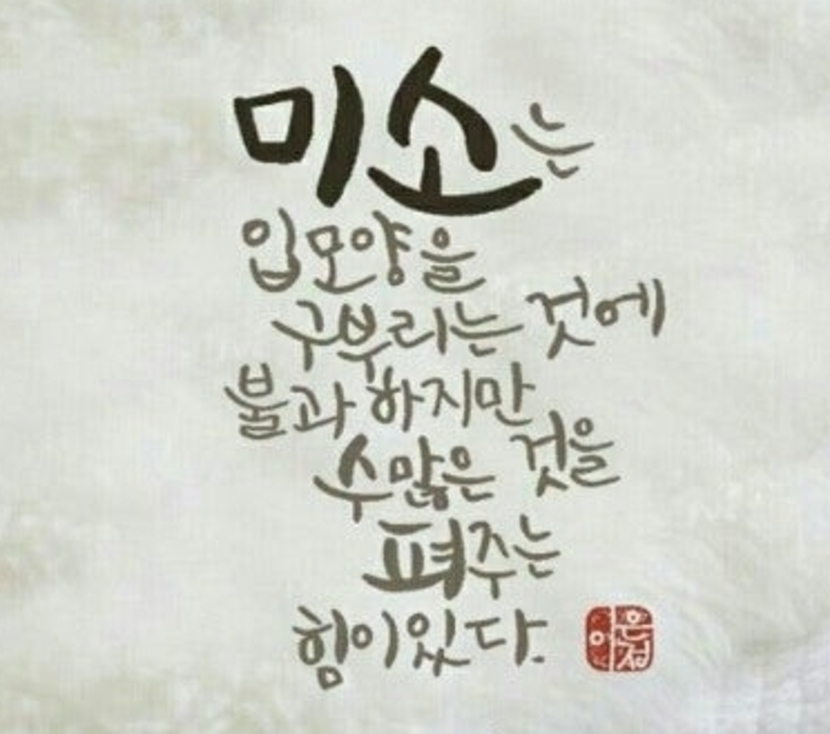 미소는
입모양을
구부리는 것에
불과 하지만
수많은 것을
펴주는
힘이있다.
이은정